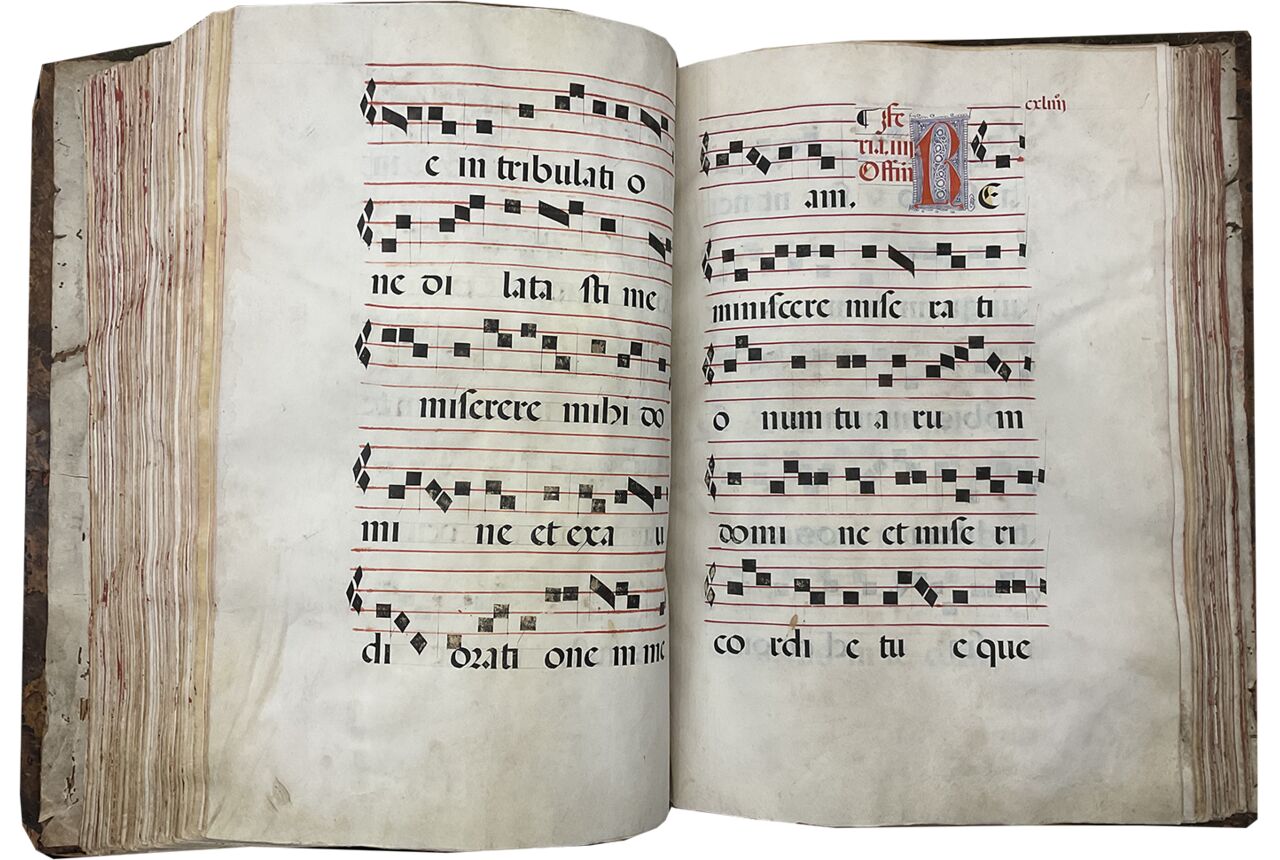 e in tribulati o
ne di lata sti me
miserere mihi do
mi ne et exa u
di orati one m me
cxliiij
¶ Fe
ria.iiij
Offm
am. R E
miniscere mise ra ti
o num tu a ru m
domi ne et mise ri
co rdi e tu e que